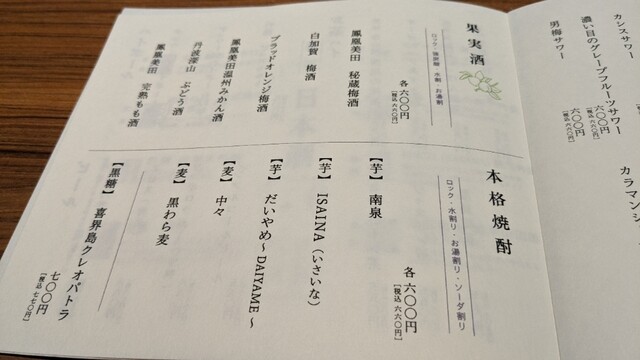 カシスサワー
濃い目のグレープフルーツサワー
六〇〇円
［税込 六六〇円］
男梅サワー
六〇〇円
カラマンシ
果実酒
ロック・水割・お湯割
各 六〇〇円
［税込 六六〇円］
鳳凰美田 秘蔵梅酒
白加賀 梅酒
ブラッドオレンジ梅酒
鳳凰美田温州みかん酒
丹波深山 ぶどう酒
鳳凰美田 完熟もも酒
本格焼酎
ロック・水割り・お湯割り・ソーダ割り
各 六〇〇円
［税込 六六〇円］
【芋】 南泉
【芋】 ISAINA（いさいな）
【芋】 だいやめ～DAIYAME～
【麦】 中々
【麦】 黒わら麦
【黒糖】 喜界島クレオパトラ
七〇〇円
［税込 七七〇円］